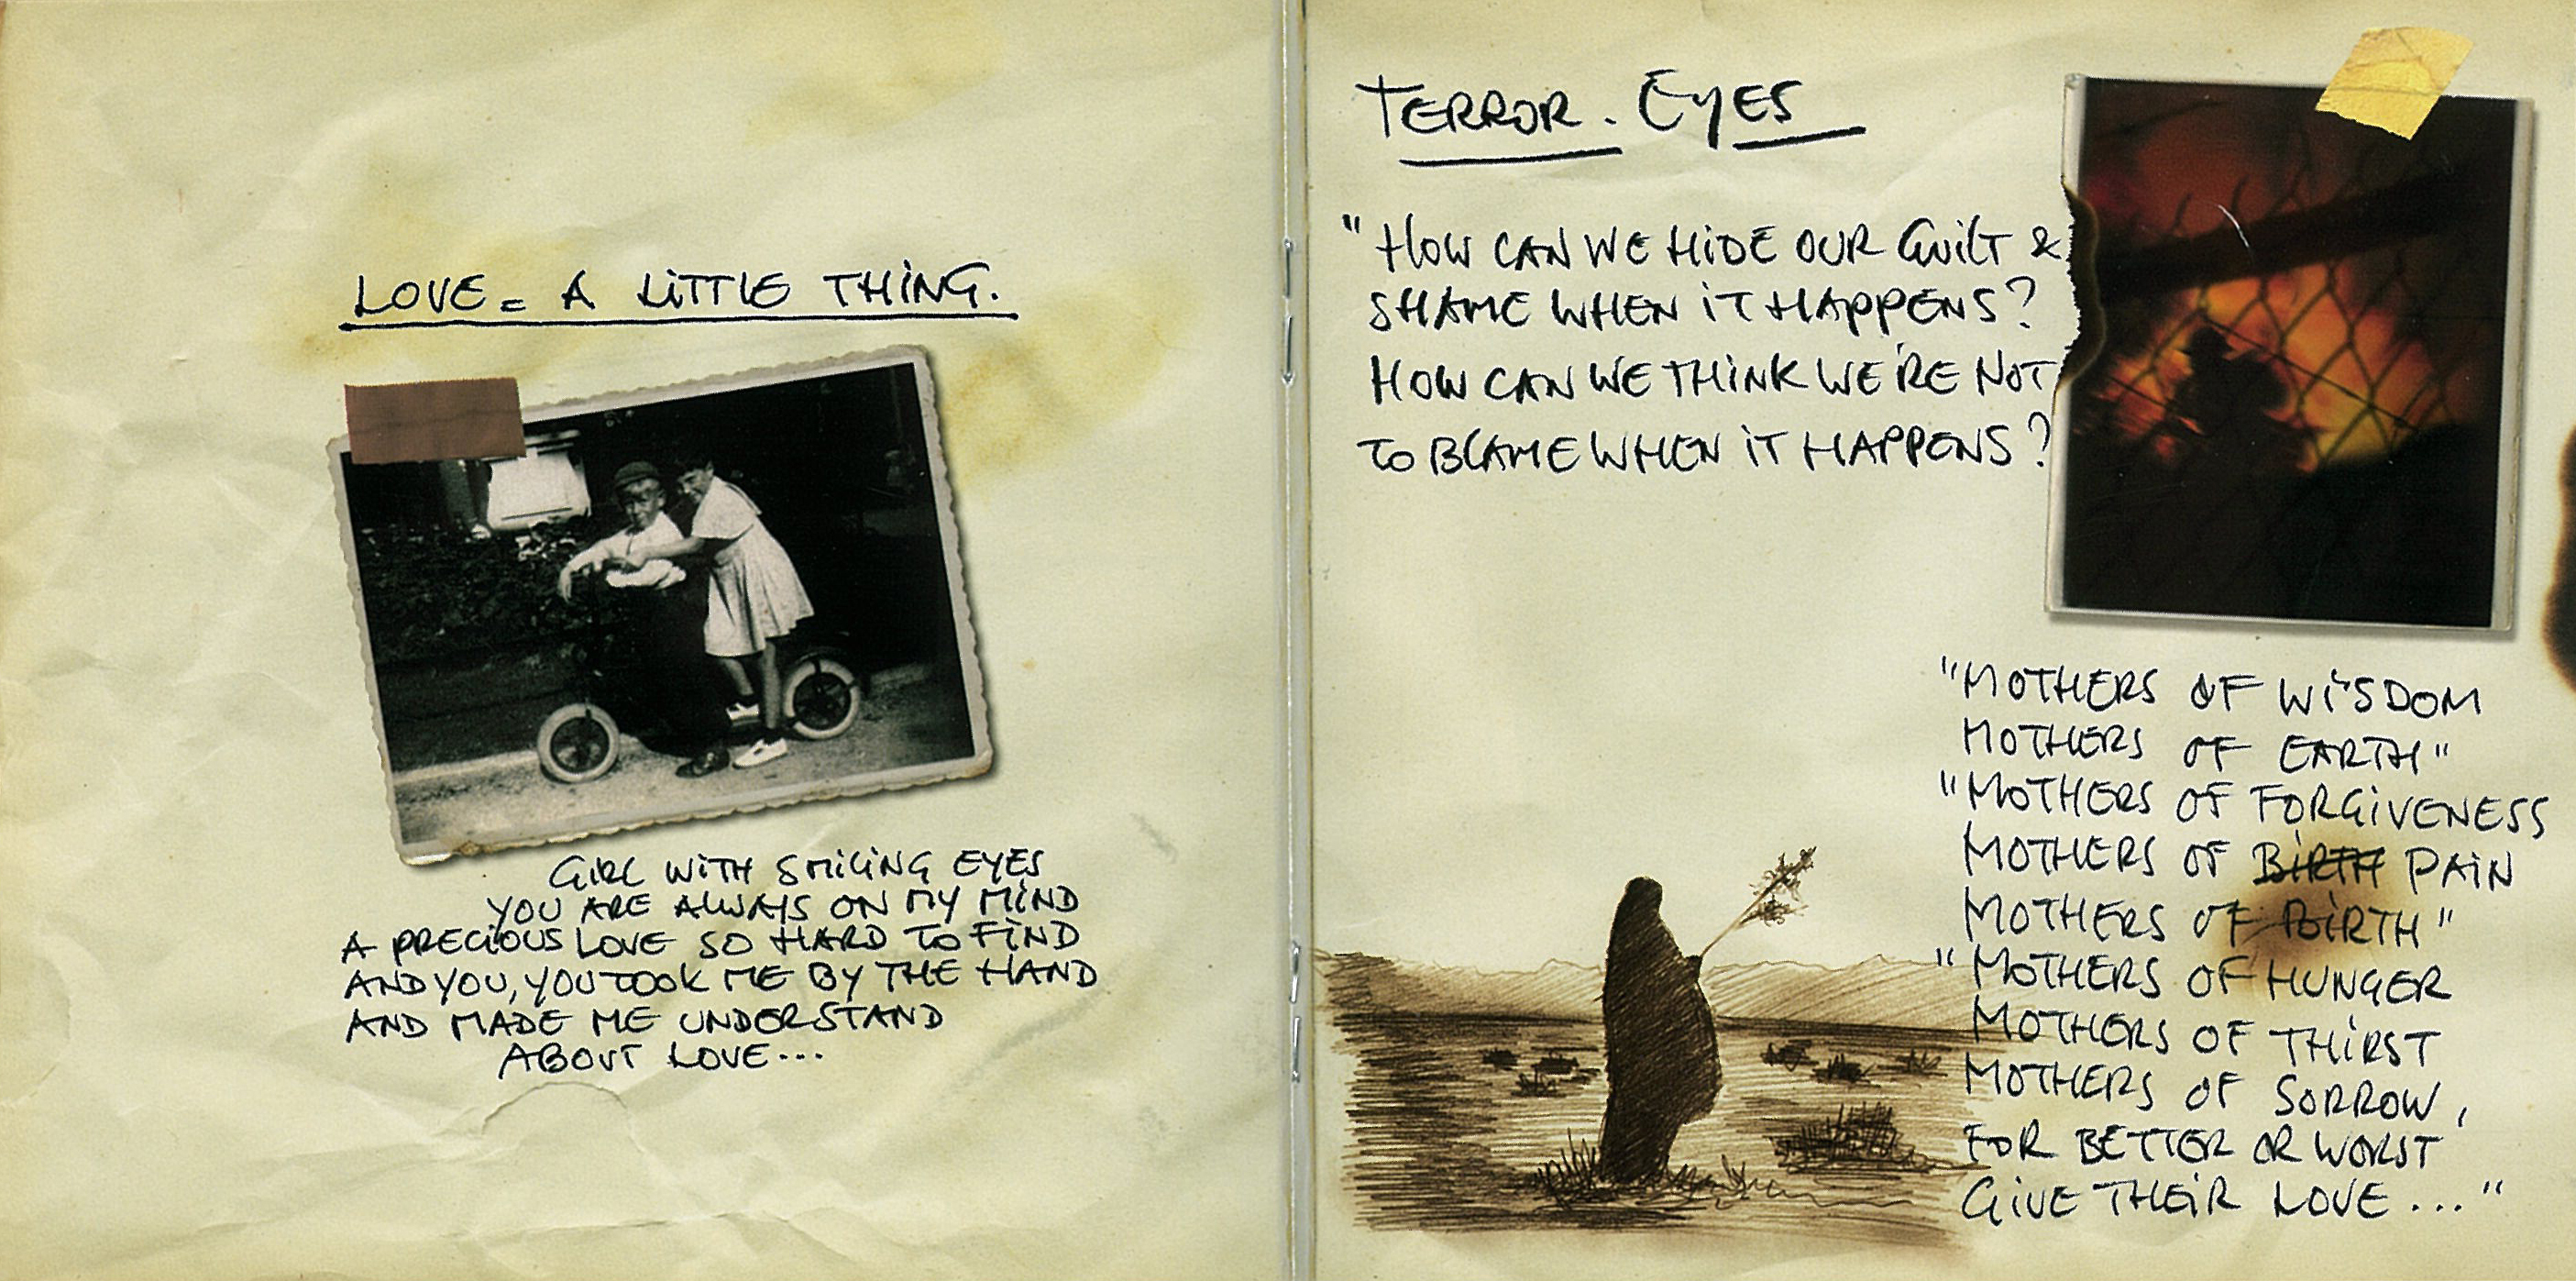 LOVE = A LiTTLE THiNG.
GiRL WiTH SMiLiNG EYES
YOU ARE ALWAYS ON MY MiND
A PRECiOUS LOVE SO HARD TO FiND
AND YOU, YOU TOOK ME BY THE HAND
AND MADE ME UNDERSTAND
ABOUT LOVE...
TERROR. EYES
"HOW CAN WE HiDE OUR GUiLT &
SHAME WHEN iT HAPPENS?
HOW CAN WE THiNK WE'RE NOT
TO BLAME WHEN iT HAPPENS?
"MOTHERS OF WiSDOM
MOTHERS OF EARTH"
"MOTHERS OF FORGiVENESS
MOTHERS OF BiRTH PAiN
MOTHERS OF BiRTH"
"MOTHERS OF HUNGER
MOTHERS OF THiRST
MOTHERS OF SORROW,
FOR BETTER OR WORST
GiVE THEiR LOVE..."